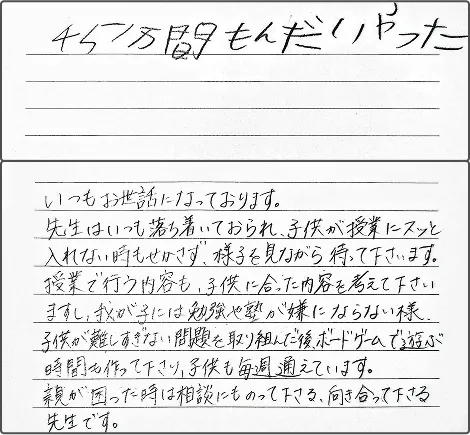 45万間もんだいやった
いつもお世話になっております。
先生はいつも落ち着いておられ、子供が授業にスッと
入れない時もせかさず、様子を見ながら待って下さいます。
授業で行う内容も、子供に合った内容を考えて下さい
ますし、我が子には勉強や塾が嫌にならない様、
子供が難しすぎない問題を取り組んだ後、ボードゲームで遊ぶ
時間も作って下さり、子供も毎週通えています。
親が困った時は相談にものって下さる、向き合って下さる
先生です。